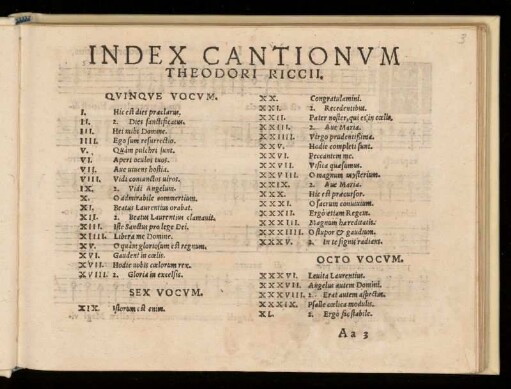 3
INDEX CANTIONVM
THEODORI RICCII.
QVINQVE VOCVM.
I. Hic est dies præclarus.
II. 2. Dies sanctificatus.
III. Hei mihi Domine.
IIII. Ego sum resurrectio.
V. Quàm pulchri sunt.
VI. Aperi oculos tuos.
VII. Aue viuens hostia.
VIII. Vidi coniunctos viros.
IX. 2. Vidi Angelum.
X. O admirabile commertium.
XI. Beatus Laurentius orabat.
XII. 2. Beatus Laurentius clamauit.
XIII. Iste Sanctus pro lege Dei.
XIIII. Libera me Domine.
XV. O quàm gloriosum est regnum.
XVI. Gaudent in cœlis.
XVII. Hodie nobis cœlorum rex.
XVIII. 2. Gloria in excelsis.
SEX VOCVM.
XIX. Istorum est enim.
XX. Congratulamini.
XXI. 2. Recedentibus.
XXII. Pater noster, qui es in cœlis.
XXIII. 2. Aue Maria.
XXIIII. Virgo prudentissima.
XXV. Hodie completi sunt.
XXVI. Peccantem me.
XXVII. Visita quæsumus.
XXVIII. O magnum mysterium.
XXIX. 2. Aue Maria.
XXX. Hic est præcursor.
XXXI. O sacrum conuiuium.
XXXII. Ergò etiam Regem.
XXXIII. Magnum hæreditatis.
XXXIIII. O stupor & gaudium.
XXXV. 2. In te signis radians.
OCTO VOCVM.
XXXVI. Leuita Laurentius.
XXXVII. Angelus autem Domini.
XXXVIII. 2. Erat autem aspectus.
XXXIX. Psalle cœlica modulis.
XL. 2. Ergò sis stabile.
Aa 3